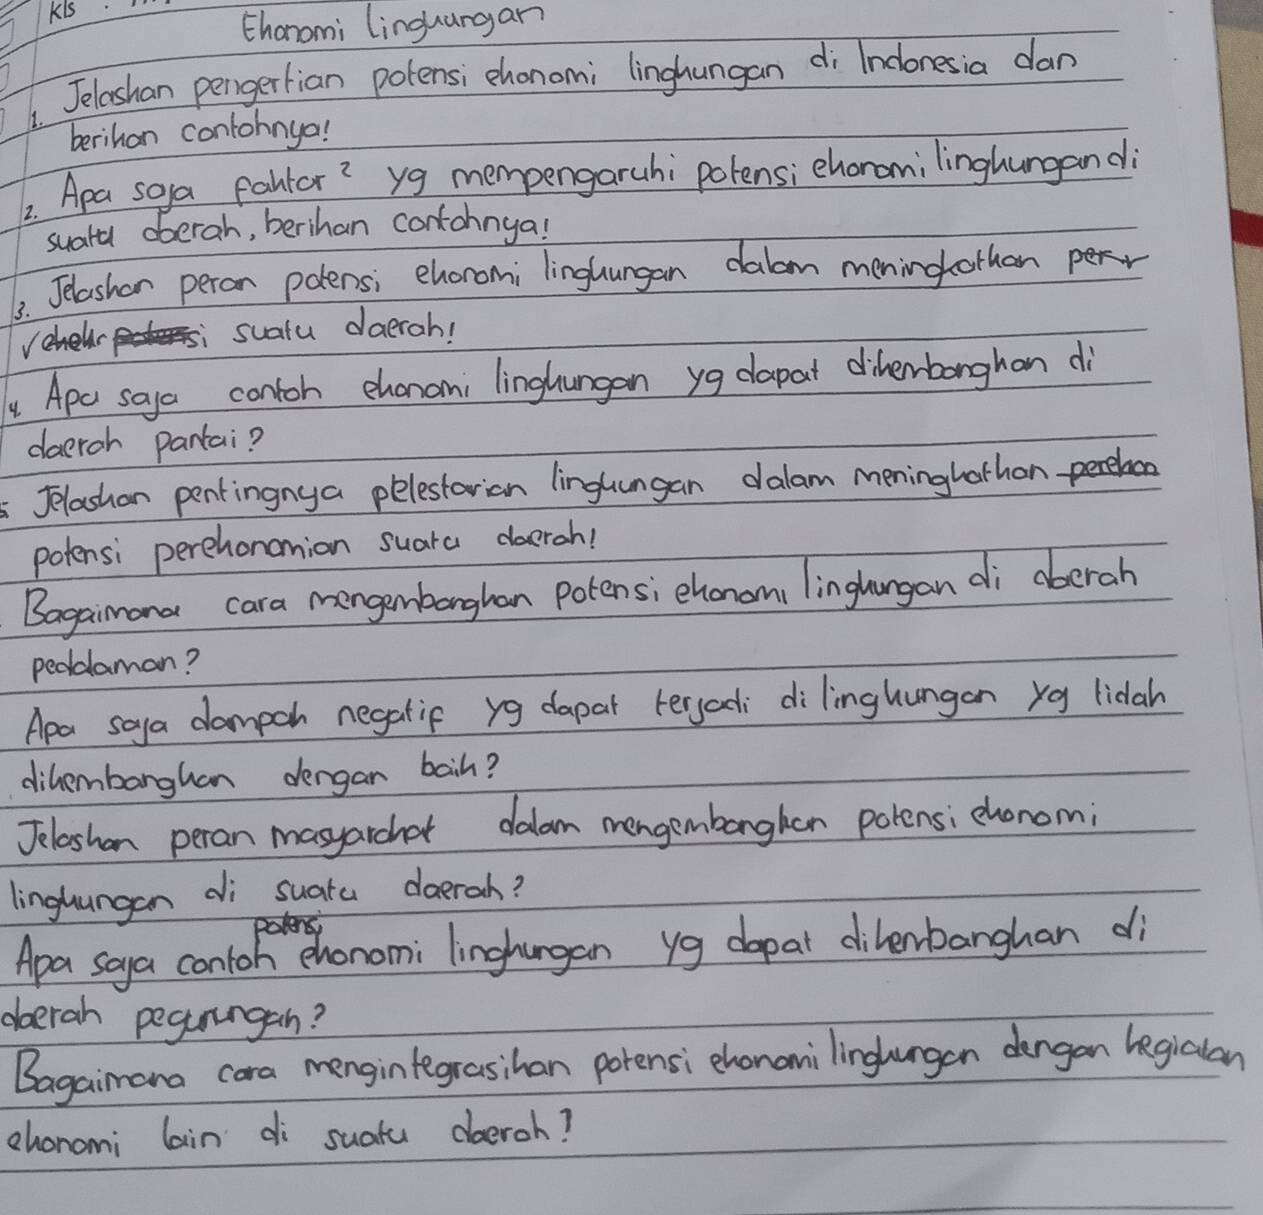 Kls
Ekonomi lingkungan
1. Jelaskan pengertian potensi ekonomi lingkungan di Indonesia dan
berikan contohnya!
2. Apa saja faktor² yg mempengaruhi potensi ekonomi lingkungan di
suatu daerah, berikan contohnya!
3. Jelaskan peran potensi ekonomi lingkungan dalam meningkatkan
suatu daerah!
4. Apa saja contoh ekonomi lingkungan yg dapat dikembangkan di
daerah pantai?
5 Jelaskan pentingnya pelestarian lingkungan dalam meningkatkan
potensi perekonomian suatu daerah!
Bagaimana cara mengembangkan potensi ekonomi lingkungan di daerah
pedalaman?
Apa saja dampak negatif yg dapat terjadi di lingkungan yg tidak
dikembangkan dengan baik?
Jelaskan peran masyarakat dalam mengembangkan potensi ekonomi
lingkungan di suatu daerah?
Apa saja contoh potensi ekonomi lingkungan yg dapat dikembangkan di
daerah pegunungan?
Bagaimana cara mengintegrasikan potensi ekonomi lingkungan dengan kegiatan
ekonomi lain di suatu daerah?